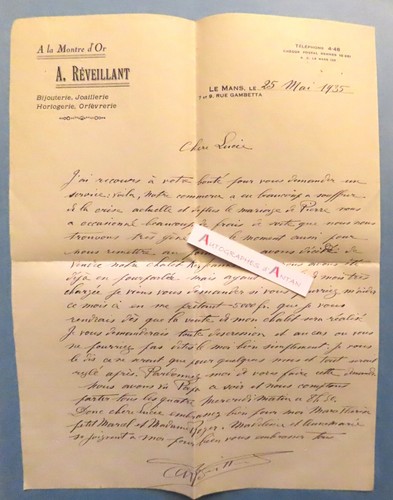 A la Montre d'Or
A. RÉVEILLANT
Bijouterie, Joaillerie
Horlogerie, Orfèvrerie
TÉLÉPHONE 4-48
LE MANS, LE 25 Mai 1935
7 et 9, RUE GAMBETTA
Chère Lucie
J'ai recours à votre bonté pour vous demander un
service; voilà, notre commerce a eu beaucoup à souffrir
de la crise actuelle et de plus le mariage de Pierre nous
a occasionné beaucoup de frais de sorte que nous nous
trouvons très gênés le moment aussi pour
nous remettre, nous décidé de
vendre notre chalet
déjà en mois très
chargé je viens vous demander si vous pourriez m'aider
ce mois-ci en me prêtant 5000 fr. que je vous
rendrais dès que la vente de mon chalet sera réalisé
Je vous demanderais toute discrétion et au cas où vous
ne pourriez pas dites le moi bien simplement. je vous
le dis ce ne serait que pour quelques mois et tout serait
réglé après. Pardonnez-moi de vous faire cette demande
Nous avons vu Papa ce soir et nous comptons
partir tous les quatre Mercredi matin à 8h30.
Donc chère Lucie embrassez bien pour moi
petit Marcel et Madame Roger. Madeleine et
se joignent à moi pour bien vous embrasser tous
AUTOGRAPHES d'ANTAN